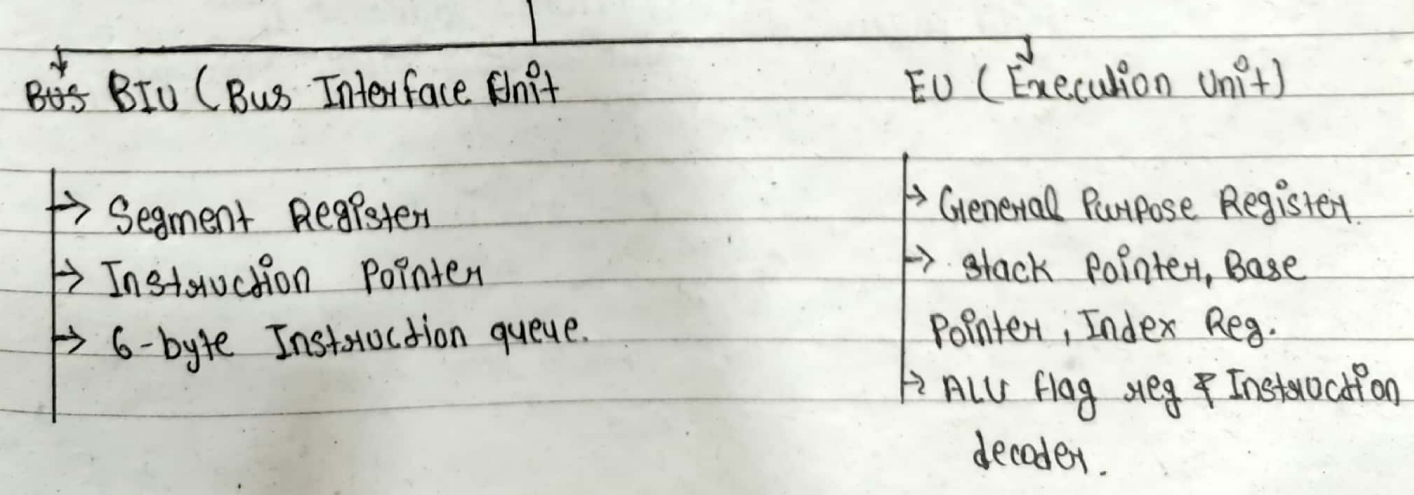 BIU (Bus Interface Unit
EU (Execution Unit)
→ Segment Register
→ Instruction Pointer
→ 6-byte Instruction queue.
→ General Purpose Register.
→ Stack Pointer, Base
Pointer, Index Reg.
→ ALU flag reg & Instruction
decoder.